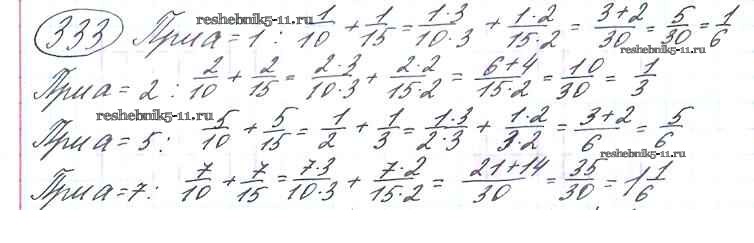 reshebnik5-11.ru
333 При a = 1 : 1/10 + 1/15 = 1·3/10·3 + 1·2/15·2 = 3+2/30 = 5/30 = 1/6
reshebnik5-11.ru
При a = 2 : 2/10 + 2/15 = 2·3/10·3 + 2·2/15·2 = 6+4/15·2 = 10/30 = 1/3
reshebnik5-11.ru
При a = 5 : 5/10 + 5/15 = 1/2 + 1/3 = 1·3/2·3 + 1·2/3·2 = 3+2/6 = 5/6
reshebnik5-11.ru
При a = 7 : 7/10 + 7/15 = 7·3/10·3 + 7·2/15·2 = 21+14/30 = 35/30 = 1 1/6